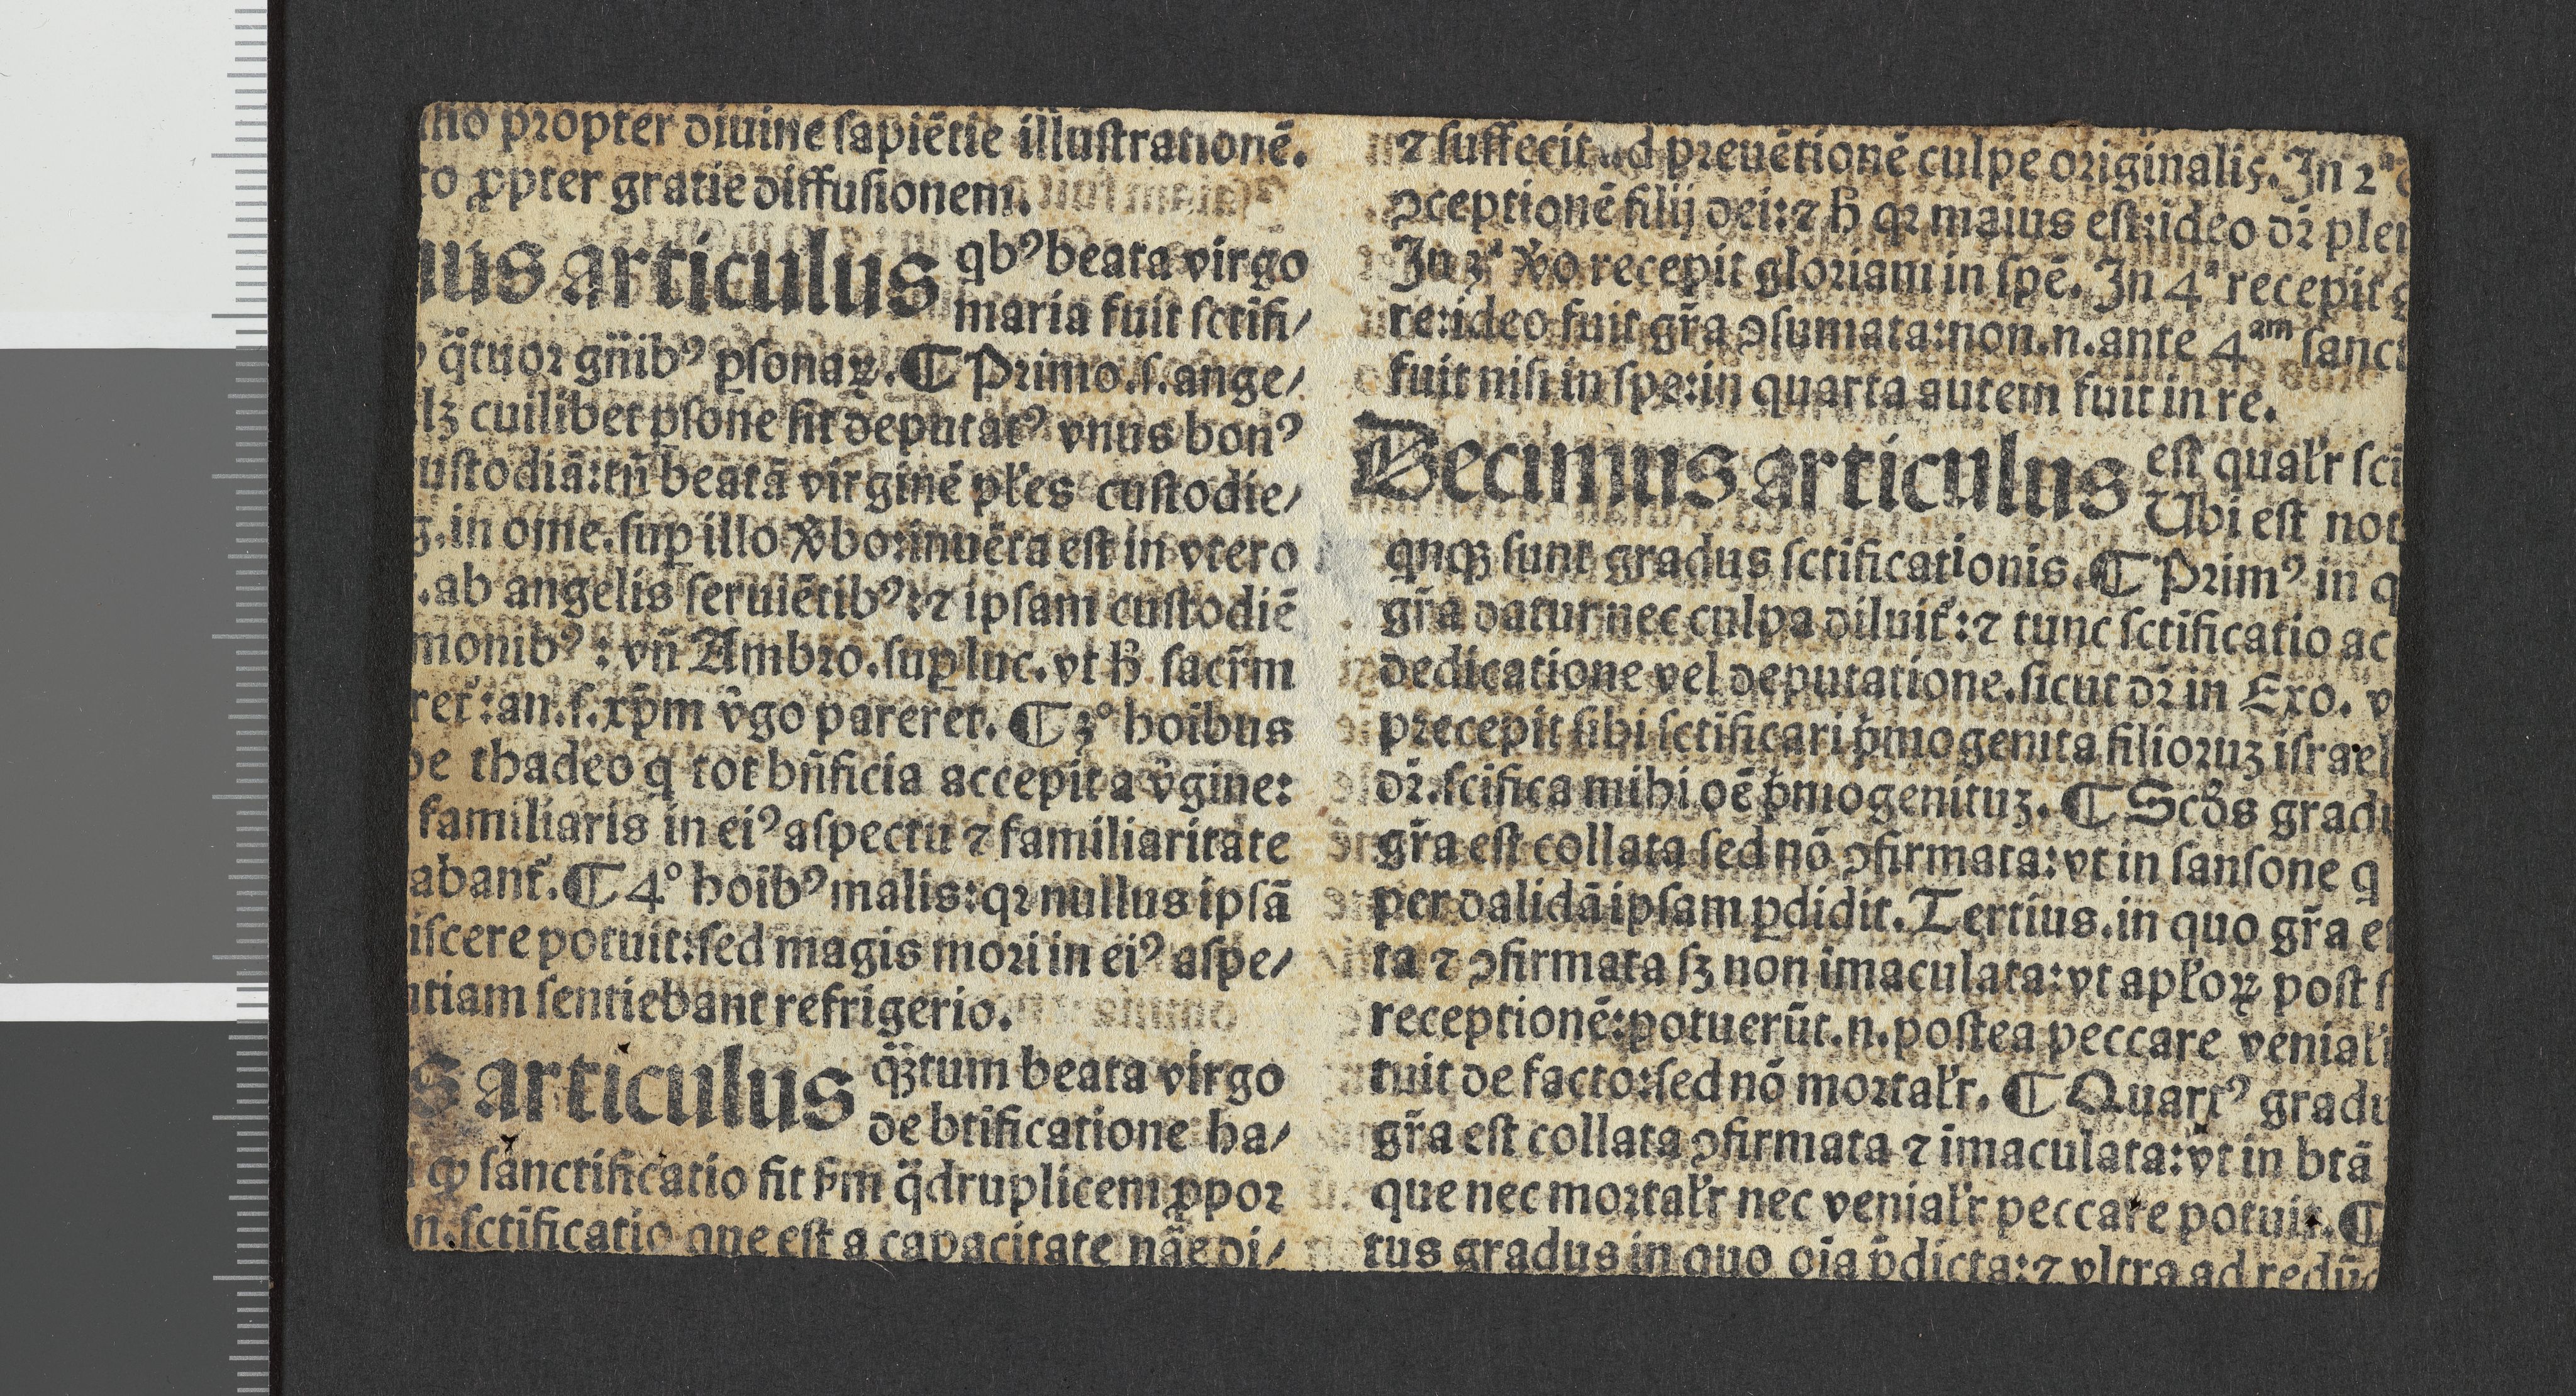 no propter diuine sapiētie illustrationē.
to ꝓpter gratie diffusionem.
us articulus qbꝰ beata virgo
maria fuit sctifi/
q̄tuor gn̄ibꝰ ꝑsonaꝝ. ¶ Primo.s.ange/
lꝫ cuilibet psone sit deputatꝰ vnus bonꝰ
ustodiā: tn̄ beatā virginē pl̓es custodie/
.in ome.suꝑ illo v̓bo: inuēta est in vtero
.ab angelis seruiētibꝰ: ⁊ ipsam custodiē
monibꝰ: vn̄ Ambro.suꝑ luc. vt h̄ sacr̄m
ret̄: an.s.xp̄m v̓go pareret. ¶ 3° hoibus
de thadeo q tot bn̄ficia accepit a v̓gine:
familiaris in eiꝰ aspectu ⁊ familiaritate
abant̄. ¶ 4° hoibꝰ malis: qꝛ nullus ipsā
iscere potuit: sed magis mori in eiꝰ aspe/
ntiam sentiebant refrigerio.
s articulus qꝫtum beata virgo
de btificatione ha/
ꝙ sanctificatio fit ẜm q̄druplicem ꝓpor
n.sctificatio que est a capacitate nāe di/
⁊ suffecit ad preuētionē culpe originalis. In 2ª
ↄceptionē filij dei: ⁊ h̄ qꝛ maius est: ideo dr̄ ple
In 3ª v̓o recepit gloriam in spē. In 4ª recepit
re: ideo fuit gr̄a ↄsumata: non.n.ante 4ᵃᵐ sanct
fuit nisi in spe: in quarta autem fuit in re.
Decimus articulus est qual̓r sci
Ubi est not
qnqꝫ sunt gradus sctificationis. ¶ Primꝰ in q
gr̄a datur nec culpa diluit̄: ⁊ tunc sctificatio ac
dedicatione vel deputatione. sicut dr̄ in Exo. v
precepit sibi sctificari p̓mogenita filioruꝫ israel
dr̄. scifica mihi oē p̓mogenituꝫ. ¶ Scd̓s gradu
gr̄a est collata sed nō ↄfirmata: vt in sansone q
per dalidā ipsam ꝑdidit. Tertius. in quo gr̄a e
ta ⁊ ↄfirmata sꝫ non imaculata: vt apl̓oꝝ post s
receptionē: potuerūt.n.postea peccare venial̓
tuit de facto: sed nō mortal̓r. ¶ Quartꝰ gradu
gr̄a est collata ↄfirmata ⁊ imaculata: vt in btā
que nec mortal̓r nec venial̓r peccare potuit. ¶
tus gradus in quo oīa p̄dicta: ⁊ vltra ad redūc